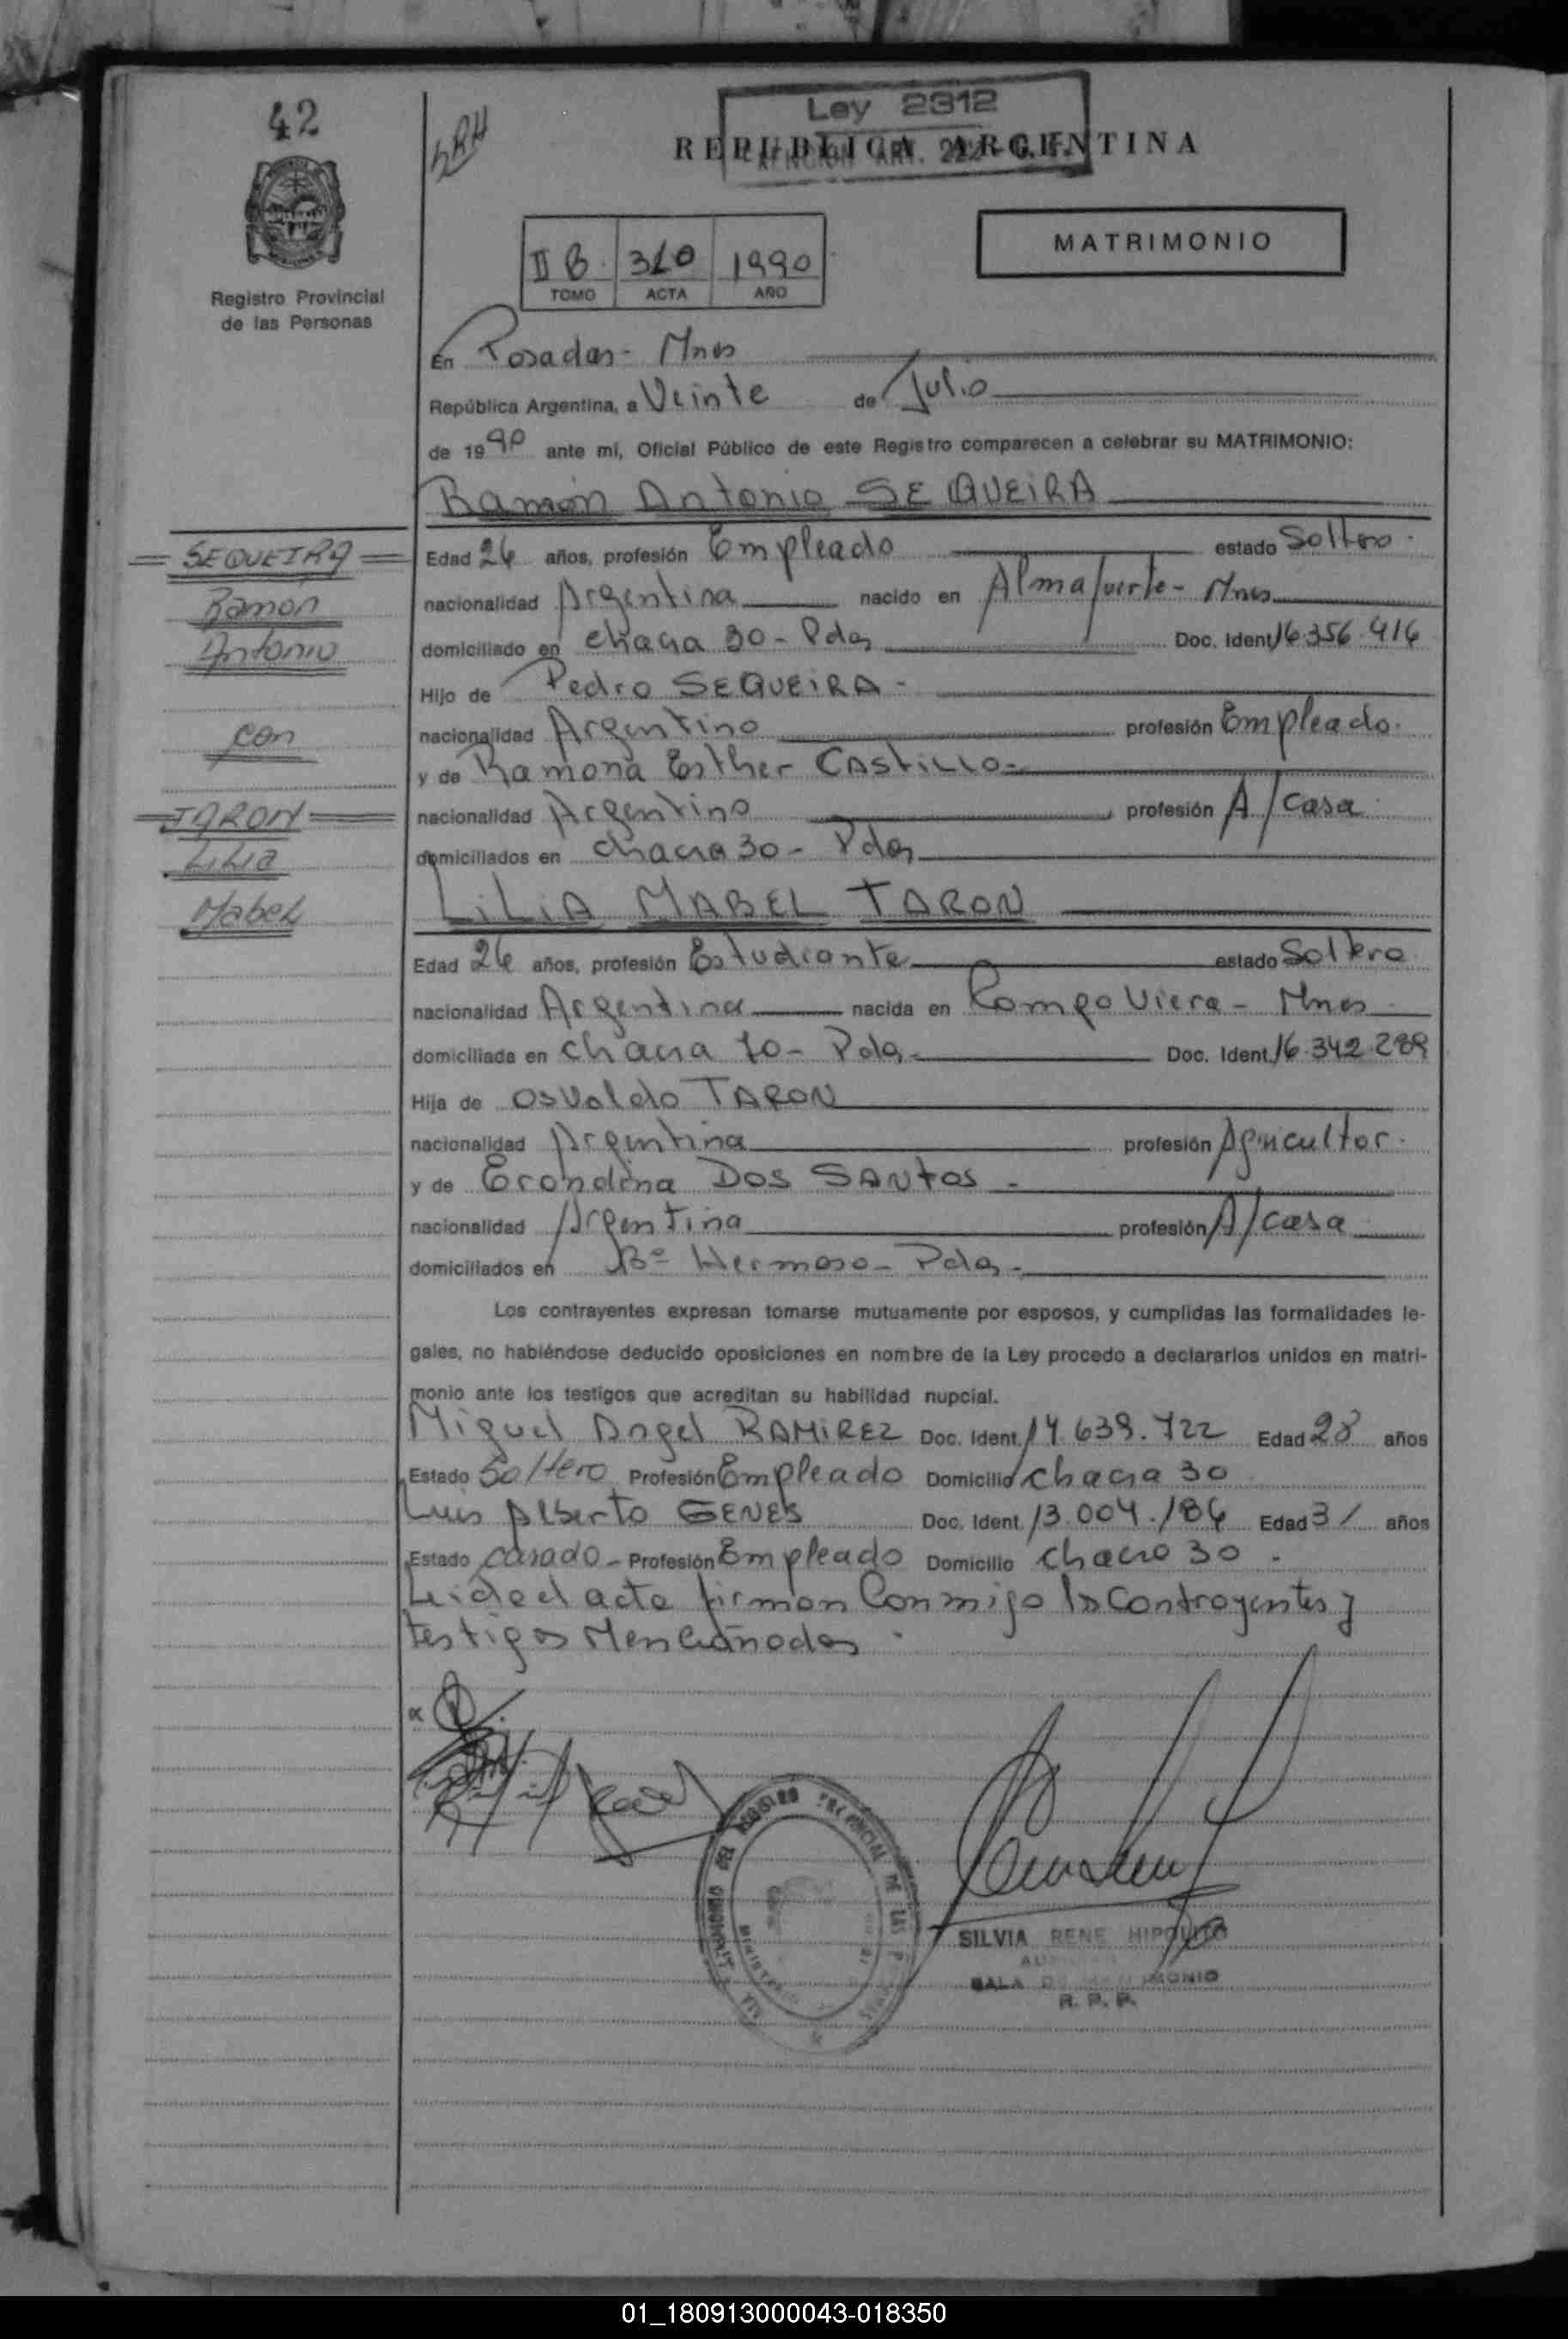 42
SRH
Ley 2312
REPUBLICA ARGENTINA
Registro Provincial
de las Personas
MATRIMONIO
II B. 310 1990
TOMO ACTA AÑO
En Posadas - Mnes
República Argentina, a Veinte de Julio
de 1990 ante mí, Oficial Público de este Registro comparecen a celebrar su MATRIMONIO:
Ramón Antonio SEQUEIRA
SEQUEIRA
Ramon
Antonio
con
TARON
Lilia
Mabel
Edad 26 años, profesión Empleado estado Soltero.
nacionalidad Argentina nacido en Almafuerte - Mnes
domiciliado en chacra 30 - Pdas Doc. Ident. 16.356.416
Hijo de Pedro SEQUEIRA -
nacionalidad Argentino profesión Empleado.
y de Ramona Esther CASTILLO -
nacionalidad Argentino profesión A/casa
domiciliados en chacra 30 - Pdas
LILIA MABEL TARON
Edad 26 años, profesión Estudiante estado Soltera
nacionalidad Argentina nacida en Campo Viera - Mnes
domiciliada en chacra 70 - Pdas - Doc. Ident. 16.342.289
Hija de Osvaldo TARON
nacionalidad Argentina profesión Agricultor.
y de Erondina DOS SANTOS -
nacionalidad Argentina profesión A/casa
domiciliados en Bº Hermoso - Pdas -
Los contrayentes expresan tomarse mutuamente por esposos, y cumplidas las formalidades le-
gales, no habiéndose deducido oposiciones en nombre de la Ley procedo a declararlos unidos en matri-
monio ante los testigos que acreditan su habilidad nupcial.
Miguel Angel RAMIREZ Doc. Ident. 14.639.722 Edad 28 años
Estado Soltero Profesión Empleado Domicilio chacra 30
Luis Alberto GENES Doc. Ident. 13.004.186 Edad 31 años
Estado casado - Profesión Empleado Domicilio chacra 30 -
Leido el acta firman Conmigo los Contrayentes y
testigos Mencionados.
DEL REGISTRO PROVINCIAL DE LAS
MINISTERIO
SILVIA RENE HIPOLITO
SALA DE MATRIMONIO
R. P. P.
01_180913000043-018350